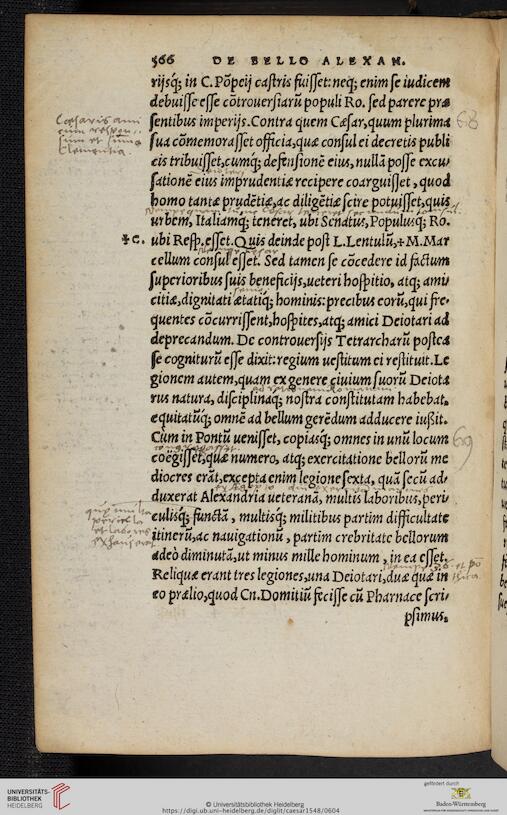 566 DE BELLO ALEXAN.
rijsq́; in C. Põpeij castris fuisset: neq; enim se iudicem
debuisse esse cõtrouersiarũ populi Ro. sed parere præ
sentibus imperijs. Contra quem Cæsar, quum plurima
sua cõmemorasset officia, quæ consul ei decretis publi
cis tribuisset, cumq́; defensionẽ eius, nullã posse excu/
sationẽ eius imprudentiæ recipere coarguisset, quod
homo tantæ prudẽtiæ, ac diligẽtiæ scire potuisset, quis
urbem, Italiamq́; teneret, ubi Senatus, Populusq́; Ro.
ubi Resp. esset. Quis deinde post L. Lentulũ, ✢ M. Mar
cellum consul esset. Sed tamen se cõcedere id factum
superioribus suis beneficijs, ueteri hospitio, atq; ami/
citiæ, dignitati ætatiq́; hominis: precibus eorũ, qui fre/
quentes cõcurrissent, hospites, atq; amici Deiotari ad
deprecandum. De controuersijs Tetrarcharũ postea
se cogniturũ esse dixit: regium uestitum ei restituit. Le
gionem autem, quam ex genere ciuium suorũ Deiota
rus natura, disciplinaq́; nostra constitutam habebat,
equitatũq́; omnẽ ad bellum gerẽdum adducere iußit.
Cùm in Pontũ uenisset, copiasq́; omnes in unũ locum
coëgisset, quæ numero, atq; exercitatione bellorũ me
diocres erãt, excepta enim legione sexta, quã secũ ad/
duxerat Alexandria ueteranã, multis laboribus, peri/
culisq́; functã, multisq́; militibus partim difficultate
itinerũ, ac nauigationũ, partim crebritate bellorum
adeò diminutã, ut minus mille hominum, in ea esset.
Reliquæ erant tres legiones, una Deiotari, duæ quæ in
eo prælio, quod Cn. Domitiũ fecisse cũ Pharnace scri/
psimus.
✢ C.
68
69
UNIVERSITÄTS-
BIBLIOTHEK
HEIDELBERG
© Universitätsbibliothek Heidelberg
https://digi.ub.uni-heidelberg.de/diglit/caesar1548/0604
gefördert durch
Baden-Württemberg